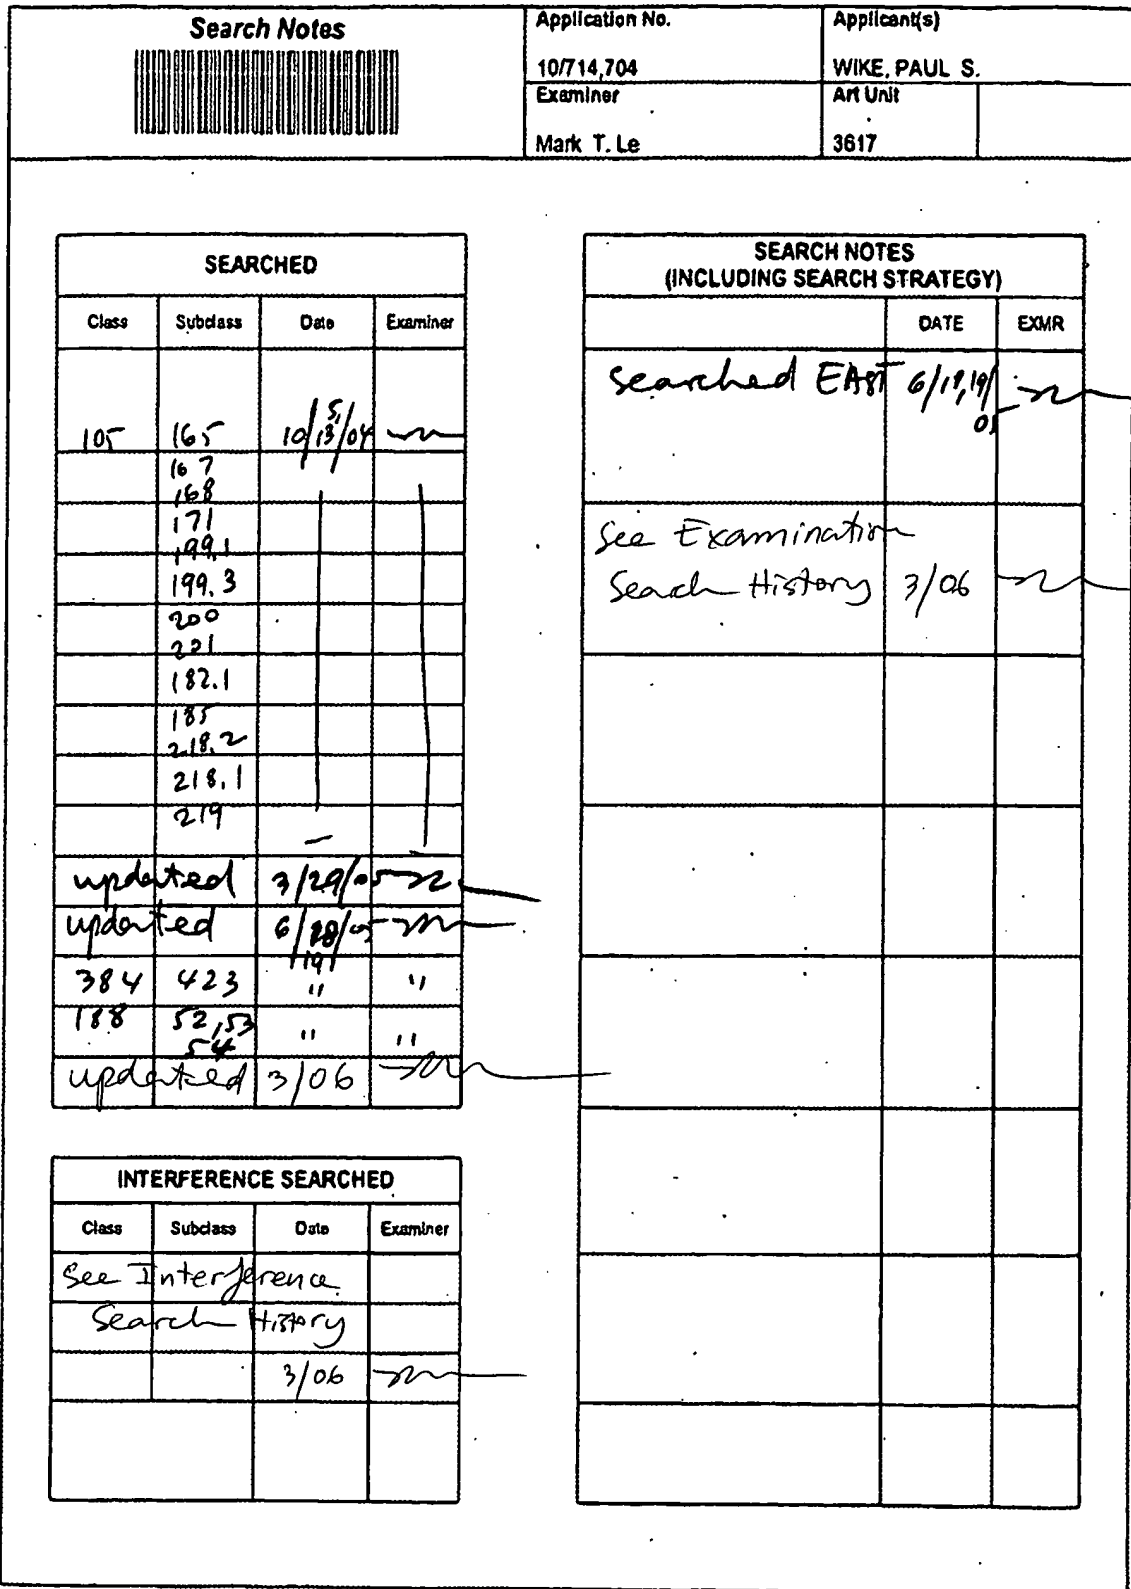 Search Notes
Application No.
10/714,704
Applicant(s)
WIKE, PAUL S.
Examiner
Mark T. Le
Art Unit
3617
SEARCHED
Class Subclass Date Examiner
105 165 10/5,13/04
167
168
171
199.1
199.3
200
201
182.1
185
218.2
218.1
219
updated 3/29/05
updated 6/18/05
19
384 423 " "
188 52,53 " "
54
updated 3/06
INTERFERENCE SEARCHED
Class Subclass Date Examiner
See Interference
Search History
3/06
SEARCH NOTES
(INCLUDING SEARCH STRATEGY)
DATE EXMR
Searched EAST 6/18,19/
05
See Examination
Search History 3/06